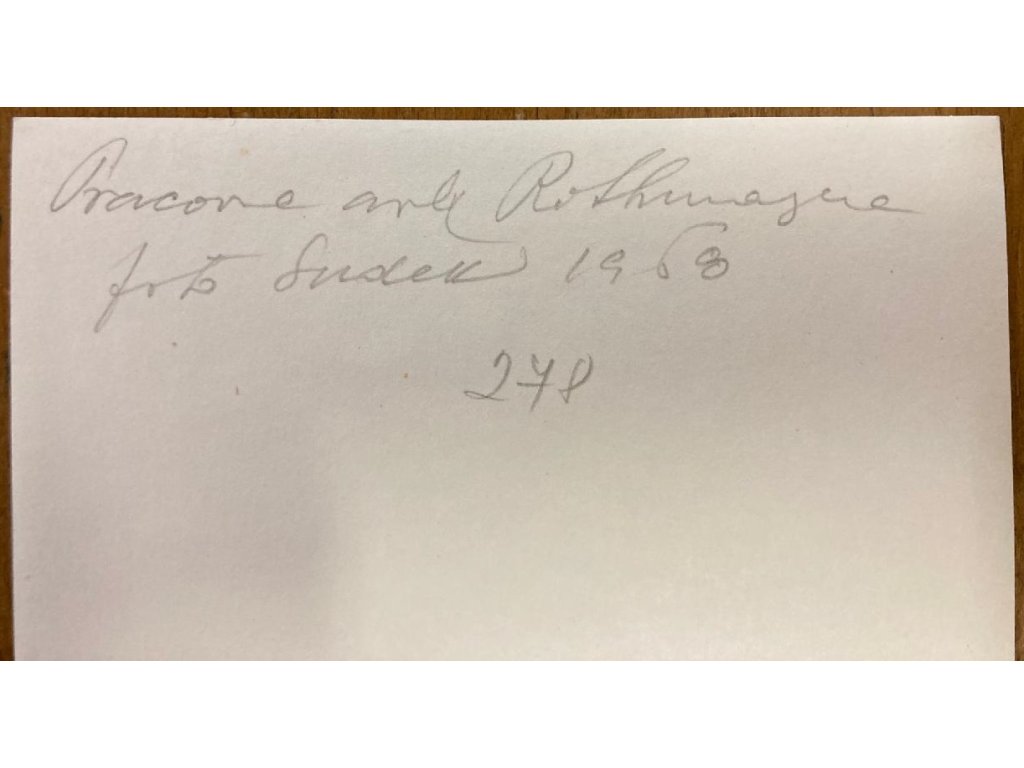 Pracovne arch Rothmayera
foto Sudek 1968
278